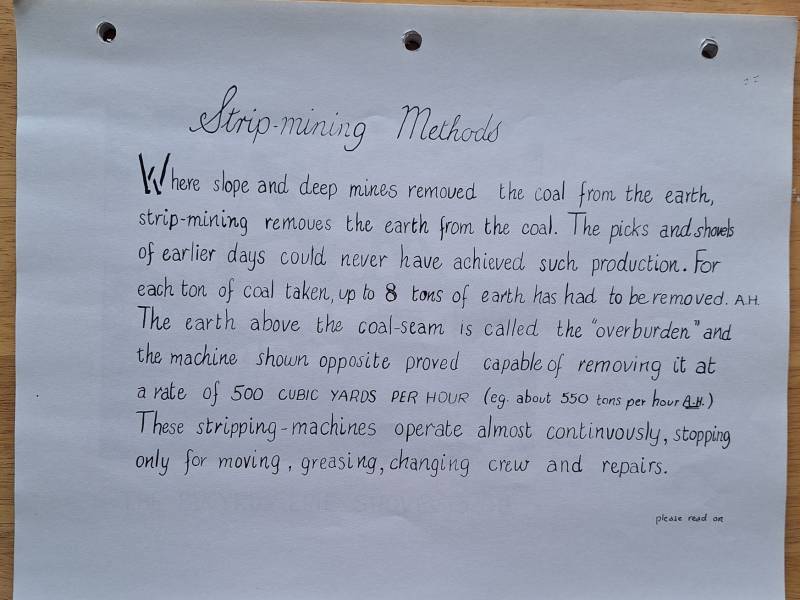 Strip-mining Methods
Where slope and deep mines removed the coal from the earth,
strip-mining removes the earth from the coal. The picks and shovels
of earlier days could never have achieved such production. For
each ton of coal taken, up to 8 tons of earth has had to be removed. A.H.
The earth above the coal-seam is called the "overburden" and
the machine shown opposite proved capable of removing it at
a rate of 500 CUBIC YARDS PER HOUR (eg. about 550 tons per hour A.H.)
These stripping-machines operate almost continuously, stopping
only for moving, greasing, changing crew and repairs.
please read on